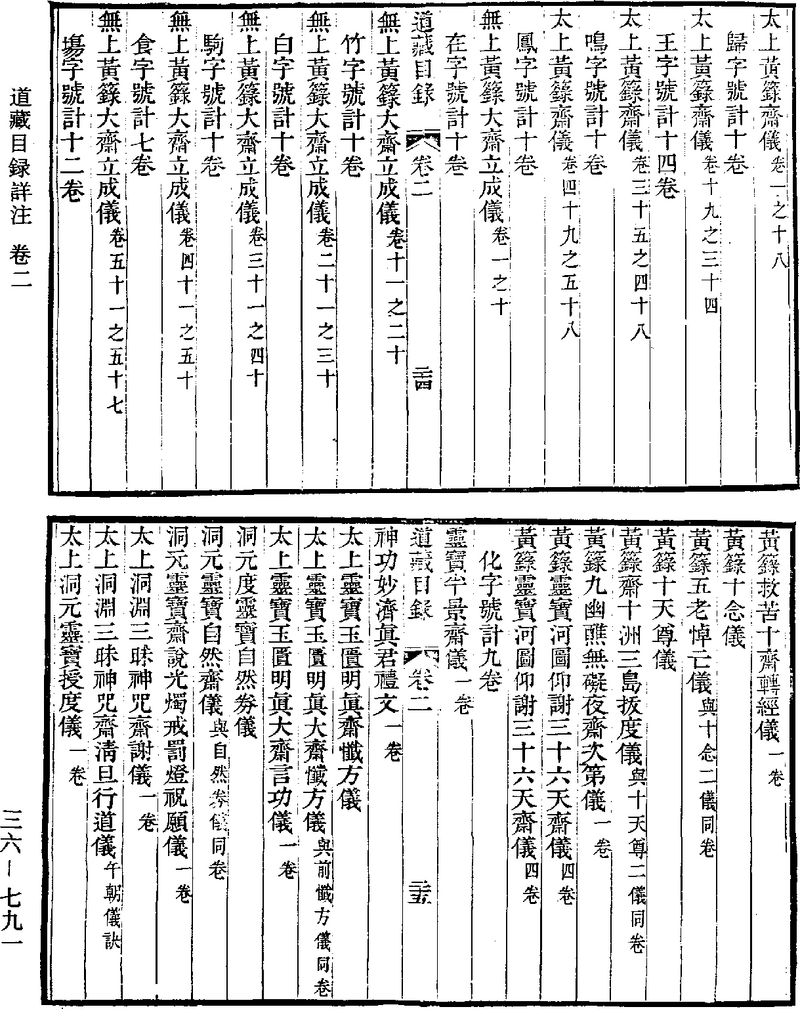 太上黃籙齋儀卷一之十八
歸字號計十卷
太上黃籙齋儀卷十九之三十四
王字號計十四卷
太上黃籙齋儀卷三十五之四十八
鳴字號計十卷
太上黃籙齋儀卷四十九之五十八
鳳字號計十卷
無上黃籙大齋立成儀卷一之十
在字號計十卷
道藏目録 卷二 二十四
無上黃籙大齋立成儀卷十一之二十
竹字號計十卷
無上黃籙大齋立成儀卷二十一之三十
白字號計十卷
無上黃籙大齋立成儀卷三十一之四十
駒字號計十卷
無上黃籙大齋立成儀卷四十一之五十
食字號計七卷
無上黃籙大齋立成儀卷五十一之五十七
塲字號計十二卷
黃籙救苦十齋轉經儀一卷
黃籙十念儀
黃籙五老悼亡儀與十念二儀同卷
黃籙十天尊儀
黃籙齋十洲三島拔度儀與十天尊二儀同卷
黃籙九幽醮無礙夜齋次第儀一卷
黃籙靈寶河圖仰謝三十六天齋儀四卷
黃籙靈寶河圖仰謝三十六天齋儀四卷
化字號計九卷
靈寶半景齋儀一卷
道藏目録 卷二 二十五
神功妙濟眞君禮文一卷
太上靈寶玉匱明眞齋懺方儀
太上靈寶玉匱明眞大齋懺方儀與前懺方儀同卷
太上靈寶玉匱明眞大齋言功儀一卷
洞元度靈寶自然劵儀
洞元靈寶自然齋儀與自然劵儀同卷
洞元靈寶齋說光燭戒罰燈祝願儀一卷
太上洞淵三昧神咒齋謝儀一卷
太上洞淵三昧神咒齋清旦行道儀午朝儀訣
太上洞元靈寶授度儀一卷
道藏目録詳注 卷二
三六－七九一